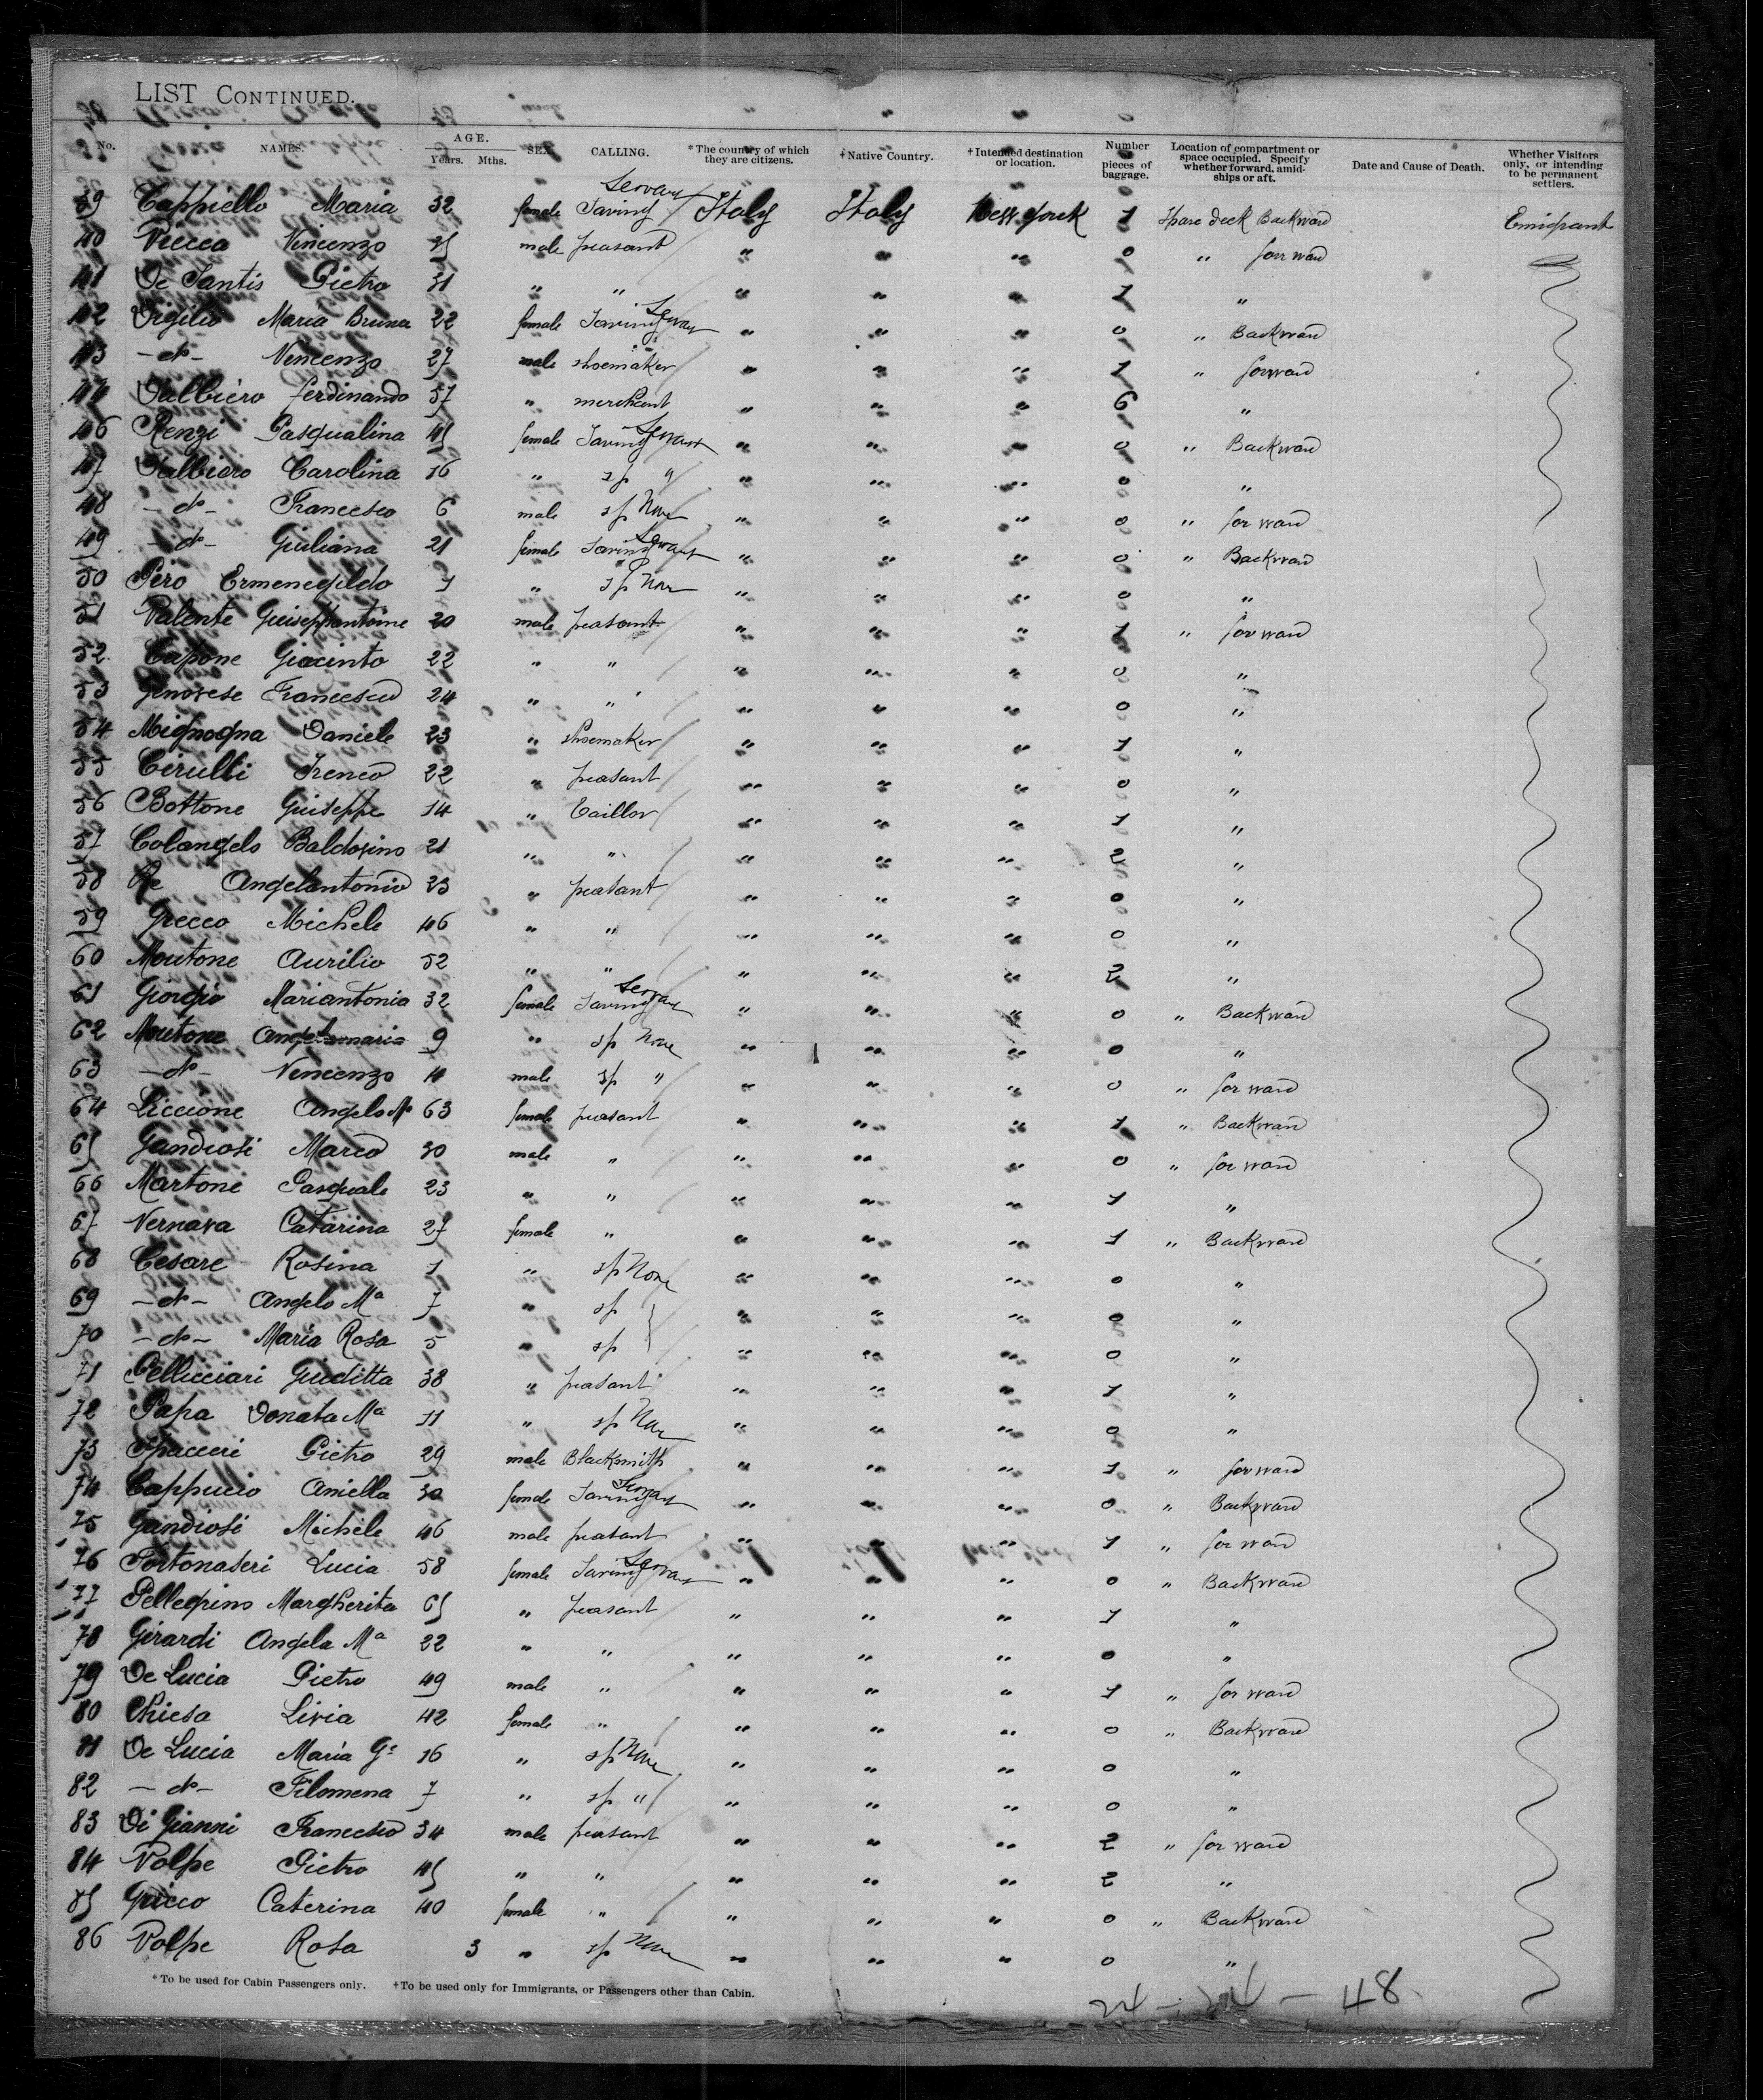 LIST CONTINUED.
No. NAMES. AGE. Years. Mths. SEX. CALLING. *The country of which they are citizens. †Native Country. †Intended destination or location. Number pieces of baggage. Location of compartment or space occupied. Specify whether forward, amidships or aft. Date and Cause of Death. Whether Visitors only, or intending to be permanent settlers.
39 Cappiello Maria 32 female Servant Italy Italy New York 1 Spare deck Backward Emigrant
40 Vincenzo male peasant " " " 0 " forward
41 De Santis Pietro 31 " " " " " 1 "
42 Vigilio Maria Bruna 22 female Servant " " " 0 " Backward
43 -do- Vincenzo 27 male shoemaker " " " 1 " forward
44 Ferdinando 57 " merchant " " " 6 "
46 Renzi Pasqualina 45 female Servant " " " 0 " Backward
47 Carolina 16 " sp " " " " 0 "
48 -do- Francesco 6 male sp None " " " 0 " forward
49 -do- Giuliana 21 female Servant " " " 0 " Backward
50 Piro Ermenegildo " sp None " " " 0 "
51 Valente 20 male peasant " " " 1 " forward
52 Capone Giacinto 22 " " " " " 0 "
53 Genovese Francesco 24 " " " " " 0 "
54 Mignogna Daniele 23 " shoemaker " " " 1 "
55 Cirulli Ireneo 22 " peasant " " " 0 "
56 Bottone Guiseppe 14 " Taillor " " " 1 "
57 Colangelo Baldovino 21 " " " " " 2 "
58 Re Angelantonio 23 " peasant " " " 0 "
59 Grecco Michele 46 " " " " " 0 "
60 Moutone Aurilio 52 " " " " " 2 "
61 Giorgio Mariantonia 32 female Servant " " " 0 " Backward
62 Moutone Angelamaria 9 " sp None " " " 0 "
63 -do- Vincenzo 4 male sp " " " " 0 " forward
64 Liccione Angela Ma 63 female peasant " " " 1 " Backward
65 Gandiosi Marco 30 male " " " " 0 " forward
66 Martone Pasquale 23 " " " " " 1 "
67 Vernava Catarina 27 female " " " " 1 " Backward
68 Cesare Rosina 1 " sp None " " " 0 "
69 -do- Angelo Ma 7 " sp " " " 0 "
70 -do- Maria Rosa 5 " sp " " " 0 "
71 Pellicciari Giuditta 38 " peasant " " " 1 "
72 Papa Donata Ma 11 " sp None " " " 0 "
73 Spacceri Pietro 29 male Blacksmith " " " 1 " forward
74 Cappuccio Aniella 30 female Servant " " " 0 " Backward
75 Gandiosi Michele 46 male peasant " " " 1 " forward
76 Tortonaseri Lucia 58 female Servant " " " 0 " Backward
77 Pellegrino Margherita 65 " peasant " " " 1 "
78 Girardi Angela Ma 22 " " " " " 0 "
79 De Lucia Pietro 49 male " " " " 1 " forward
80 Chiesa Livia 42 female " " " " 0 " Backward
81 De Lucia Maria Ga 16 " sp None " " " 0 "
82 -do- Filomena 7 " sp " " " " 0 "
83 Di Gianni Francesco 34 male peasant " " " 2 " forward
84 Volpe Pietro 45 " " " " " 2 "
85 Gricco Caterina 40 female " " " " 0 " Backward
86 Volpe Rosa 3 " sp None " " " 0 "
*To be used for Cabin Passengers only. †To be used only for Immigrants, or Passengers other than Cabin.
24 - 24 - 48